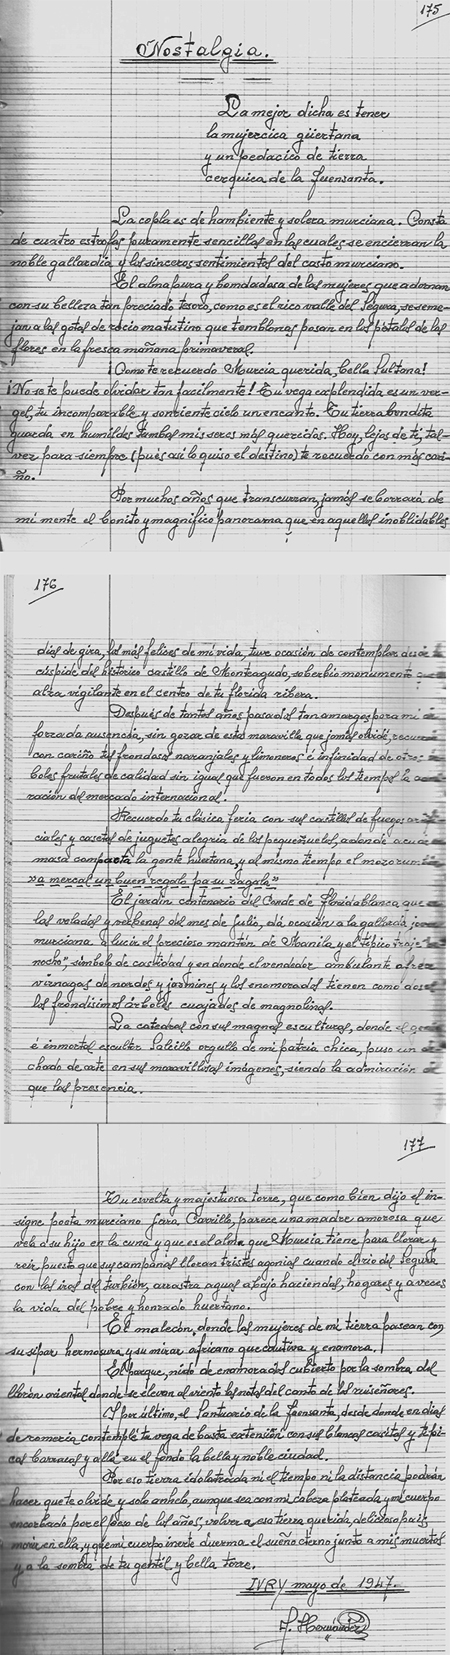 175
Nostalgia.
La mejor dicha es tener
la mujercica güertana
y un pedacico de tierra
cerquica de la Fuensanta.
La copla es de hambiente y solera murciana. Consta
de cuatro estrofas puramente sencillas en las cuales se encierran la
noble gallardía y los sinceros sentimientos del casto murciano.
El alma pura y bondadosa de las mujeres que adornan
con su belleza tan preciado tesoro, como es el rico valle del Segura, se seme-
jan a las gotas de rocio matutino que temblonas posan en los pétalos de las
flores en la fresca mañana primaveral.
¡Como te recuerdo Murcia querida, bella Sultana!
¡No se te puede olvidar tan facilmente! Tu vega explendida es un ver-
gel, tu incomparable y sonriente cielo un encanto. Tu tierra bendita
guarda en humildes tumbas mis seres más queridos. Hoy, lejos de ti, tal-
vez para siempre (pués así lo quiso el destino) te recuerdo con más cari-
ño.
Por muchos años que transcurran, jamás se borrará de
mi mente el bonito y magnifico panorama que en aquellos inolbidables
176
dias de gira, los más felices de mi vida, tuve ocasión de contemplar desde
cúspide del histórico castillo de Monteagudo, soberbio monumento
alza vigilante en el centro de tu florida ribera.
Después de tantos años pasados tan amargos para mi
forzada ausencia, sin gozar de esta maravilla que jamás olvidé, recuer
con cariño tus frondosos naranjales y limoneros é infinidad de otros
boles frutales de calidad sin igual que fueron en todos los tiempos la
ración del mercado internacional.
Recuerdo tu clásica feria con sus castillos de fuegos
ciales y casetas de juguetes alegria de los pequeñuelos, a donde acude
masa compacta la gente huertana, y al mismo tiempo el mozo
"a mercal un buen regalo pa su zagala"
El jardin centenario del Conde de Floridablanca que
las veladas y verbenas del mes de Julio, dá ocasión a la gallarda
murciana a lucir el precioso mantón de Manila y el típico traje
nocho", símbolo de castidad y en donde el vendedor ambulante ofrece
viznagas de nardos y jazmines y los enamorados tienen como dosel
los frondisimos árboles cuajados de magnolias.
La catedral con sus magnas esculturas, donde el
é inmortal escultor Salcillo orgullo de mi patria chica, puso un
chado de arte en sus maravillosas imágenes, siendo la admiración
que las presencia.
177
Tu esvelta y majestuosa torre, que como bien dijo el in-
signe poeta murciano Jara Carrillo, parece una madre amorosa que
vela a su hijo en la cuna y que es el alma que Murcia tiene para llorar y
reir puesto que sus campanas lloran tristes agonias cuando el rio del Segura
con las iras del turbión, arrastra aguas abajo haciendas, hogares y a veces
la vida del pobre y honrado huertano.
El malecón, donde las mujeres de mi tierra pasean con
su sipar hermosura y su mirar africano que cautiva y enamora.
El parque, nido de enamorados cubierto por la sombra del
llorón oriental donde se elevan al viento las notas del canto de los ruiseñores.
Y por último, el Santuario de la Fuensanta, desde donde en dias
de romeria contemplé tu vega de basta extensión con sus blancas casitas y típi-
cas barracas y allá, en el fondo la bella y noble ciudad.
Por eso tierra idolatrada ni el tiempo ni la distancia podrán
hacer que te olvide y solo anhelo, aunque sea con mi cabeza plateada y mi cuerpo
encorbado por el peso de los años, volver a esa tierra querida, delicioso pais,
morir en ella, y que mi cuerpo inerte duerma el sueño eterno junto a mis muertos
y a la sombra de tu gentil y bella torre.
IVRY mayo de 1947.
J. Hernández